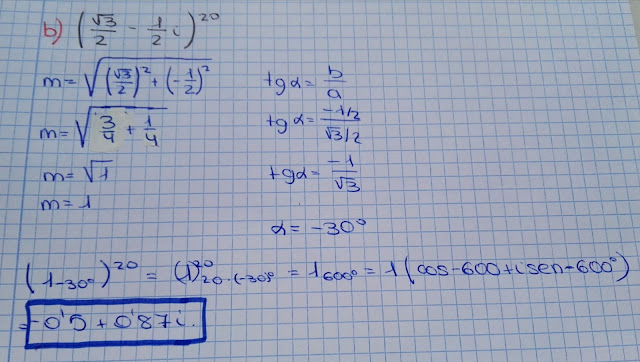 b) (√3/2 - 1/2 i)^20
m = √((√3/2)² + (-1/2)²)
tgα = b/a
m = √(3/4 + 1/4)
tgα = -1/2 / √3/2
m = √1
tgα = -1/√3
m = 1
α = -30°
(1_-30°)^20 = (1)^20_20·(-30)° = 1_600° = 1 (cos-600 + i sen-600°)
= -0'5 + 0'87 i.